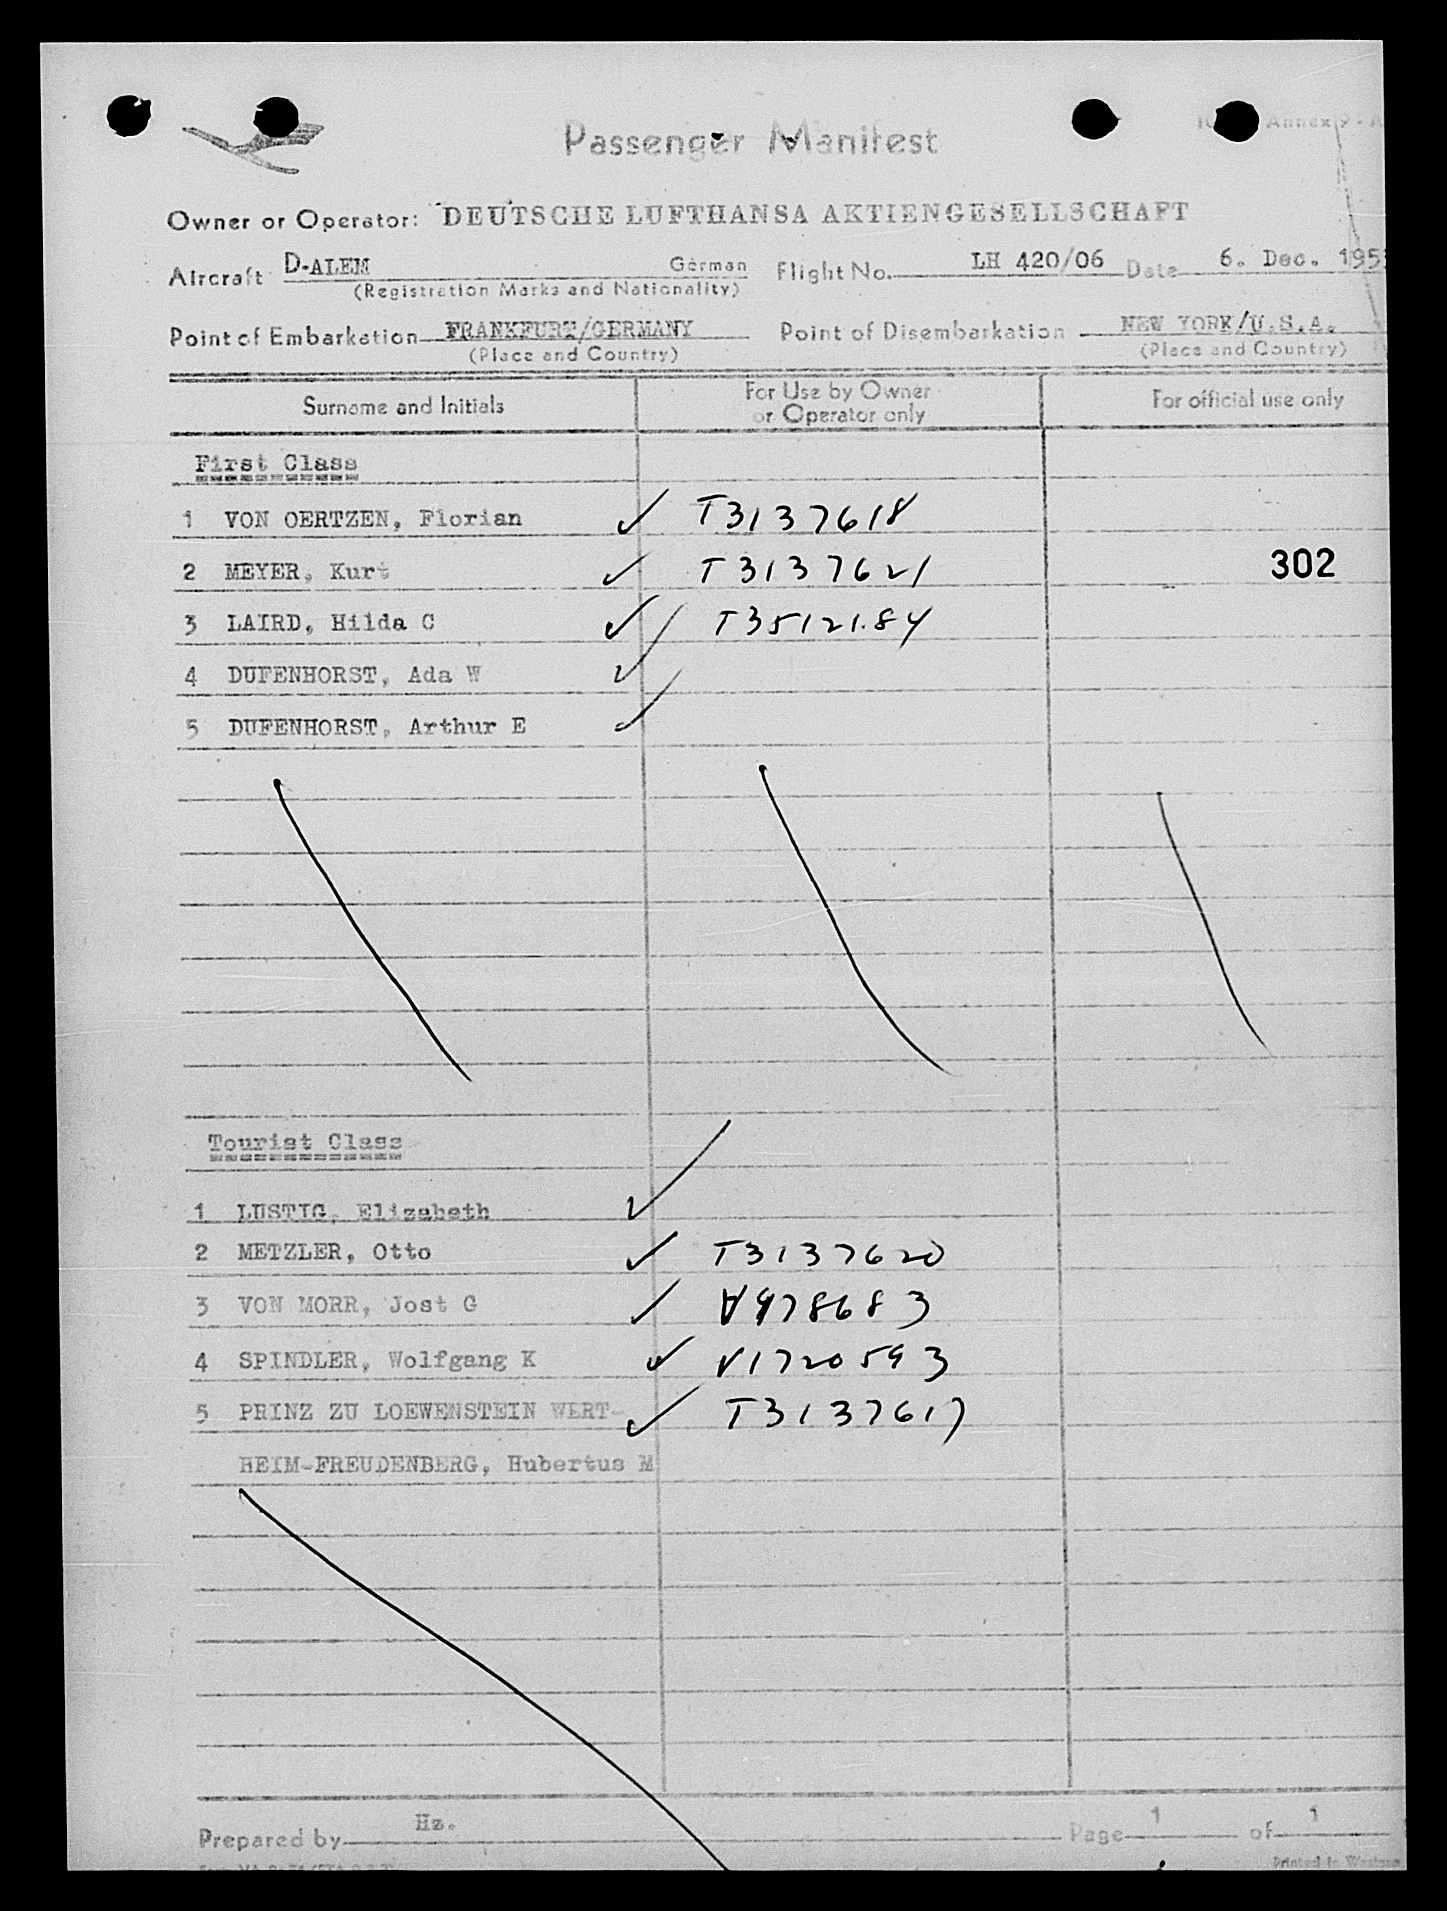 Passenger Manifest
Annex 9 - A
Owner or Operator: DEUTSCHE LUFTHANSA AKTIENGESELLSCHAFT
Aircraft D-ALEM German Flight No. LH 420/06 Date 6. Dec. 195
(Registration Marks and Nationality)
Point of Embarkation FRANKFURT/GERMANY Point of Disembarkation NEW YORK/U.S.A.
(Place and Country) (Place and Country)
Surname and Initials For Use by Owner or Operator only For official use only
First Class
1 VON OERTZEN, Florian ✓ T3137618
2 MEYER, Kurt ✓ T3137621 302
3 LAIRD, Hilda C ✓ T3512184
4 DUFENHORST, Ada W ✓
5 DUFENHORST, Arthur E ✓
Tourist Class
1 LUSTIG, Elizabeth ✓
2 METZLER, Otto ✓ T3137620
3 VON MORR, Jost G ✓ V978683
4 SPINDLER, Wolfgang K ✓ V1720593
5 PRINZ ZU LOEWENSTEIN WERT- ✓ T3137617
HEIM-FREUDENBERG, Hubertus M
Prepared by Hz. Page 1 of 1
Printed in Western